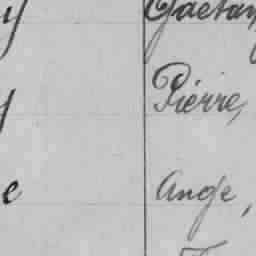 y Gaetan
y Pierre,
e Ange,